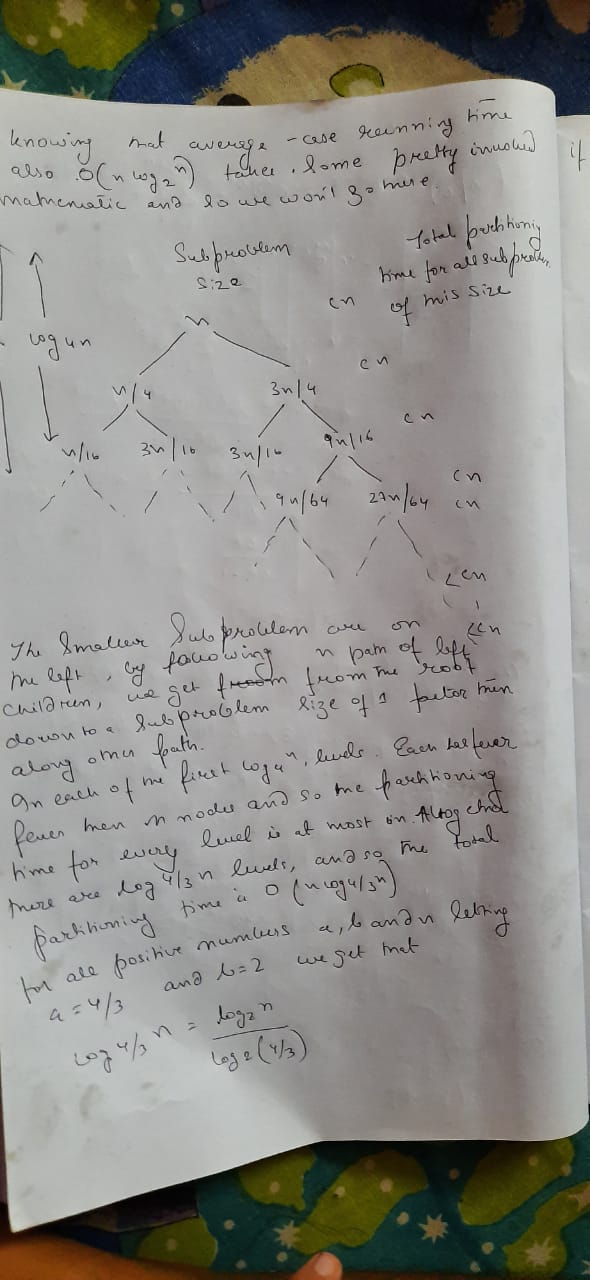 knowing that average - case running time
also O(n log₂ n) takes some pretty involved
mathematic and so we won't go there.
if
Subproblem
size
Total partitioning
time for all subproblem
of this size
cn
n
log₄n
cn
n/4 3n/4
cn
n/16 3n/16 3n/16 9n/16
cn
9n/64 27n/64 cn
<cn
<cn
The Smaller Subproblem are on
the left, by following n path of left
children, we get from from the root
down to a Subproblem size of 1 faster then
along other path.
In each of the first log₄n, levels. Each
fewer then n nodes and so the partitioning
time for every level is at most
there are log 4/3 n levels, and so the total
partitioning time is O (n log 4/3 n)
for all positive numbers a, b and n letting
a = 4/3 and b=2 we get that
log 4/3 n = log₂ n / log 2 (4/3)